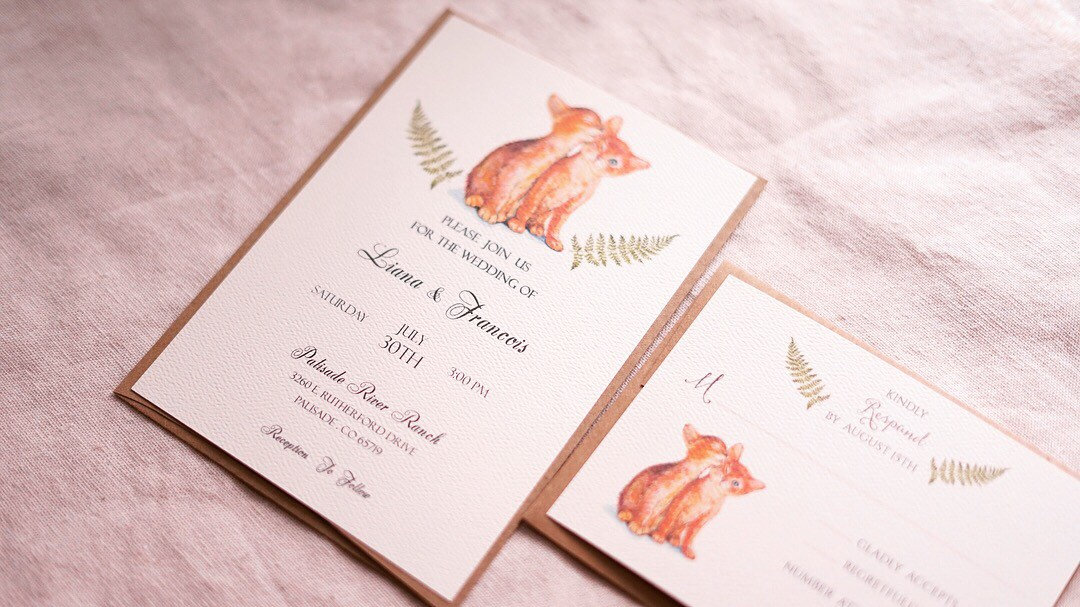 PLEASE JOIN US
FOR THE WEDDING OF
Liana & Francois
SATURDAY JULY 30TH 3:00 PM
Palisade River Ranch
3260 E. RUTHERFORD DRIVE
PALISADE - CO 65719
Reception To Follow
M
KINDLY
Respond
BY AUGUST 15TH
GLADLY ACCEPTS
NUMBER